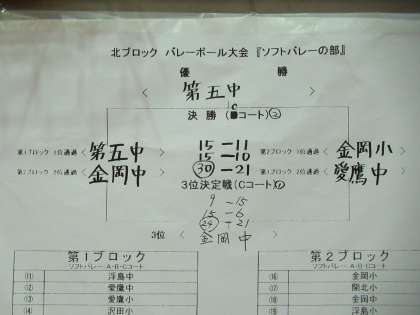 北ブロック バレーボール大会 『ソフトバレーの部』
優 勝
< 第五中 >
C
決勝(コート)②
第1ブロック 1位通過 < 第五中 > 15-11 第2ブロック 1位通過 < 金岡小 >
15-10
第1ブロック 2位通過 < 金岡中 > 30-21 第2ブロック 2位通過 < 愛鷹中 >
3位決定戦(Cコート)②
9-15
15-6
24-21
3位 < 金岡中 >
第1ブロック
ソフトバレー A・B・Cコート
⑪ 浮島中
⑫ 愛鷹中
⑬ 愛鷹小
⑭ 沢田小
第2ブロック
ソフトバレー A・B・Cコート
⑯ 金岡中
⑰ 開北小
⑱ 金岡小
⑲ 浮島小